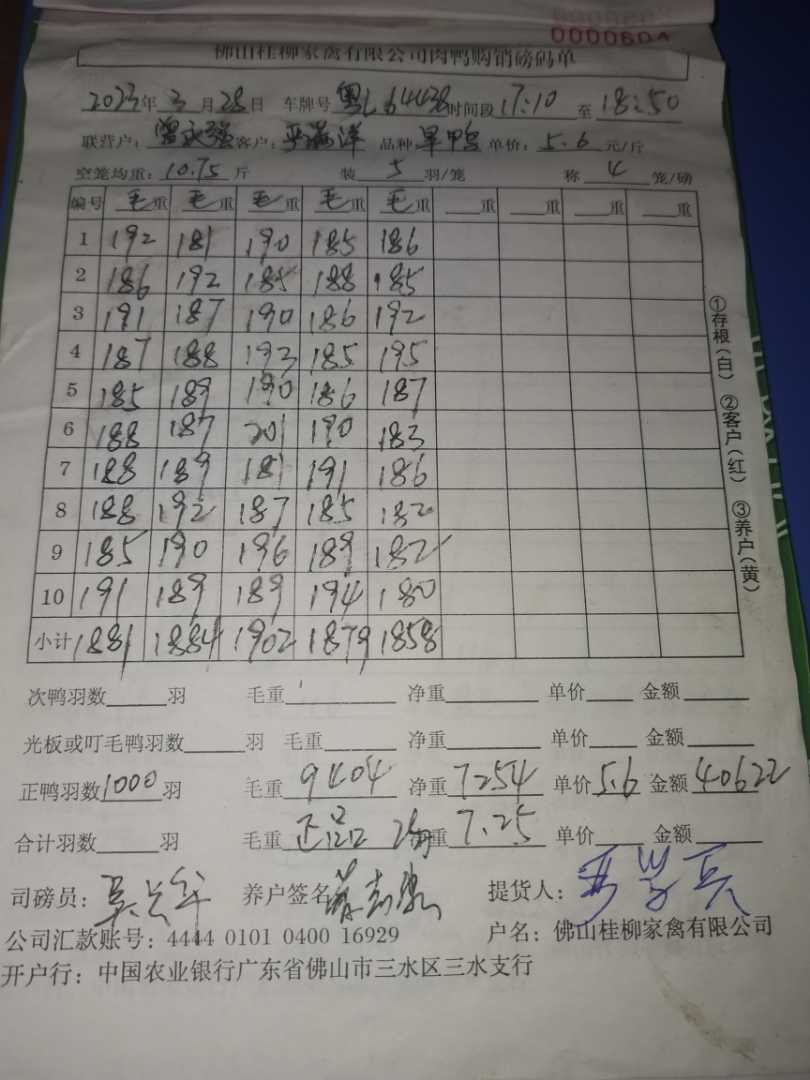 佛山桂柳家禽有限公司肉鸭购销磅码单
2023年3月28日 车牌号 粤L64438 时间段 17:10 至 18:50
联营户: 客户: 品种 旱鸭 单价: 5.6 元/斤
空笼均重: 10.75 斤 装 5 羽/笼 称 4 笼/磅
编号 毛重 毛重 毛重 毛重 毛重 重 重 重 重
1 192 181 190 185 186
2 186 192 185 188 185
3 191 187 190 186 192
4 187 188 193 185 195
5 185 189 190 186 187
6 188 187 201 190 183
7 188 189 181 191 186
8 188 192 187 185 182
9 185 190 196 189 182
10 191 189 189 194 180
小计 1881 1884 1902 1879 1858
①存根(白) ②客户(红) ③养户(黄)
次鸭羽数 羽 毛重 净重 单价 金额
光板或叮毛鸭羽数 羽 毛重 净重 单价 金额
正鸭羽数 1000 羽 毛重 9404 净重 7254 单价 5.6 金额 40622
合计羽数 羽 毛重 正品 净重 7.25 单价 金额
司磅员: 养户签名 提货人:
公司汇款账号: 4444 0101 0400 16929 户名: 佛山桂柳家禽有限公司
开户行: 中国农业银行广东省佛山市三水区三水支行